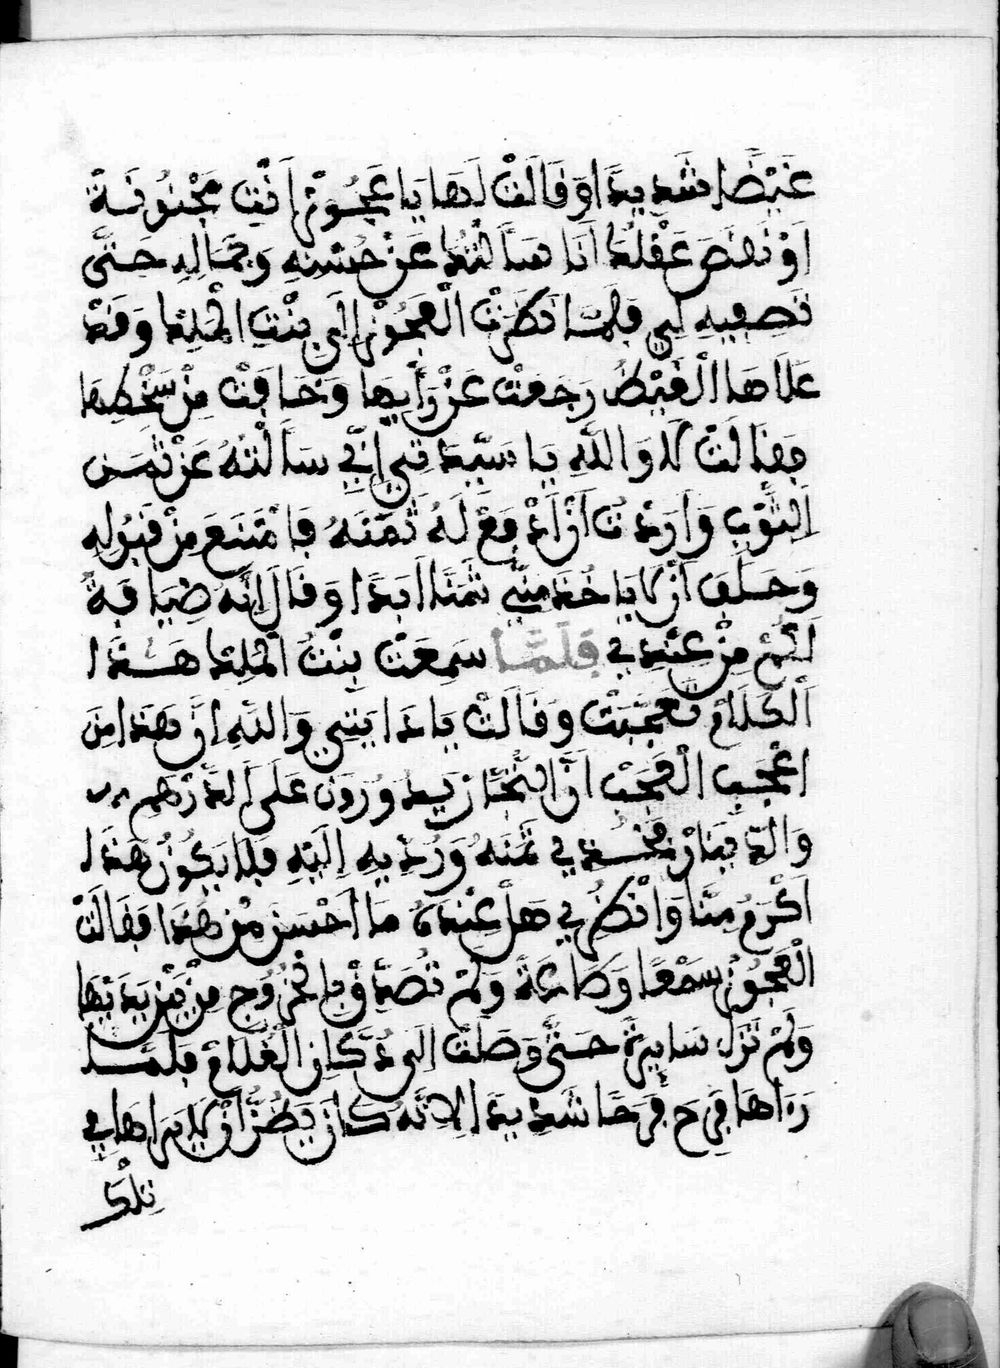 غَيْضًا شَدِيدًا وَقَالَتْ لَهَا يَا عَجُوزُ اَنْتِ مَجْنُونَةٌ
اَوْ نَقَصَ عَقْلُكِ اَنَا سَأَلْتُكِ عَنْ حُسْنِهِ وَجَمَالِهِ حَتَّى
تَصِفِيهِ لِي فَلَمَّا نَظَرَتْ الْعَجُوزُ اِلَى بِنْتِ الْمَلِكِ وَقَدْ
عَلَاهَا الْغَيْظُ رَجَعَتْ عَنْ رَأْيِهَا وَخَافَتْ مِنْ سَخْطِهَا
فَقَالَتْ لَا وَاللَّهِ يَا سَيِّدَتِي اِنِّي سَأَلْتُهُ عَنْ ثَمَنِ
الثَّوْبِ وَاَرَدْتُ اَنْ اَدْفَعَ لَهُ ثَمَنَهُ فَامْتَنَعَ مِنْ قَبُولِهِ
وَحَلَفَ اَنْ لَا يَاخُذَ مِنِّي ثَمَنًا اَبَدًا وَقَالَ اِنَّهُ ضِيَافَةٌ
لَكُمْ مِنْ عِنْدِي فَلَمَّا سَمِعَتْ بِنْتُ الْمَلِكِ هَذَا
الْكَلَامَ تَعَجَّبَتْ وَقَالَتْ يَا دَايَتِي وَاللَّهِ اِنَّ هَذَا مِنَ
اعْجَبِ الْعَجَبِ اَنَّ التُّجَّارَ يَدُورُونَ عَلَى الدَّرْهَمِ
وَالدِّينَارِ فَخُذِي ثَمَنَهُ وَرُدِّيهِ اِلَيْهِ فَلَا يَكُونُ هَذَا
اَكْرَمُ مِنَّا وَانْظُرِي هَلْ عِنْدَهُ مَا اَحْسَنَ مِنْ هَذَا فَقَالَتْ
الْعَجُوزُ سَمْعًا وَطَاعَةً وَلَمْ تُصَدِّقْ بِالْخُرُوجِ مِنْ بَيْنِ يَدَيْهَا
وَلَمْ تَزَلْ سَايِرَةً حَتَّى وَصَلَتْ اِلَى دُكَّانِ الْغُلَامِ فَلَمَّا
رَءَاهَا فَرِحَ فَرَحًا شَدِيدًا لِاَنَّهُ كَانَ يَظُنُّ اَنْ لَا يَرَاهَا فِي
تِلْكَ